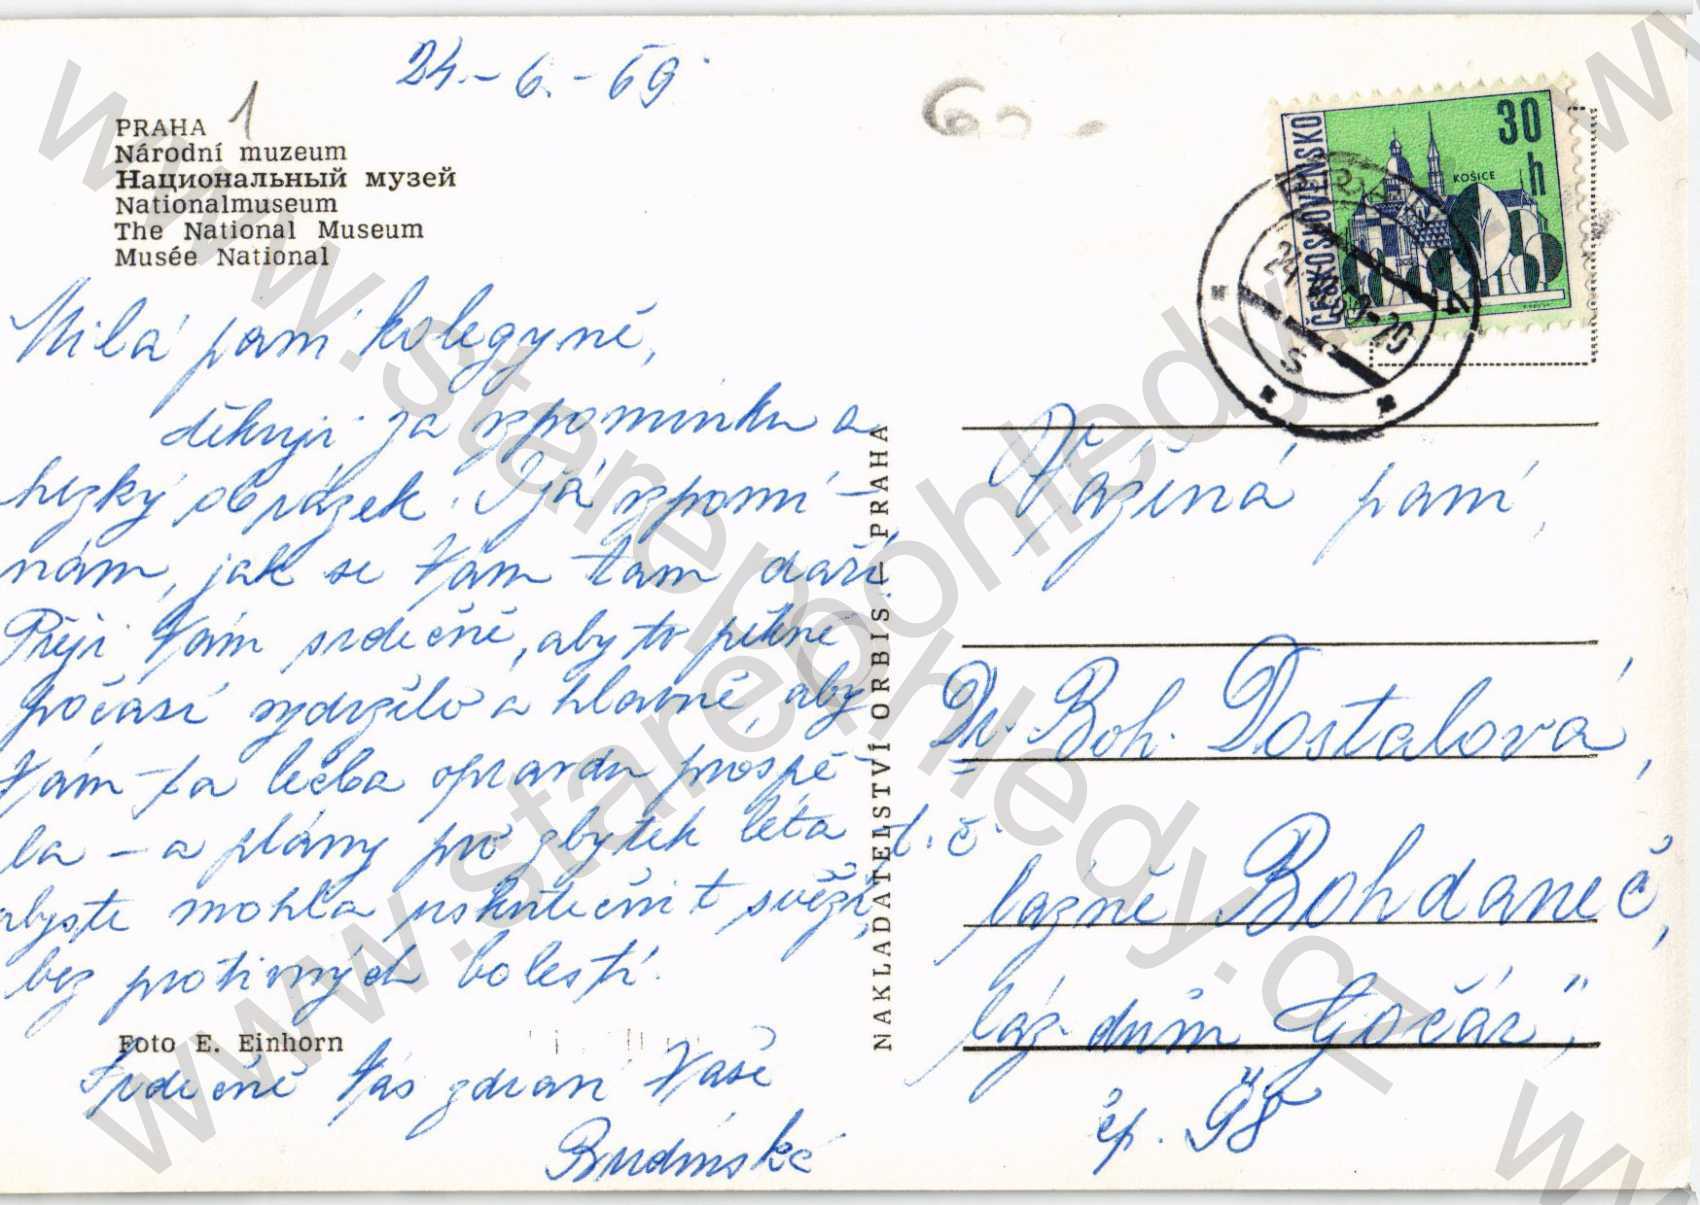 24.-6.-69
1
PRAHA
Národní muzeum
Национальный музей
Nationalmuseum
The National Museum
Musée National
Milá paní kolegyně,
děkuji za vzpomínku a
hezký obrázek. I já vzpomí-
nám, jak se Vám tam daří.
Přeji Vám srdečně, aby to pěkné
počasí vydrželo a hlavně, aby
Vám ta léčba opravdu prospě-
la – a plány pro zbytek léta
abyste mohla uskutečnit svěží,
bez protivných bolestí.
Foto E. Einhorn
Srdečně Vás zdraví Vaše
Budínské
NAKLADATELSTVÍ ORBIS – PRAHA
ČESKOSLOVENSKO
30 h
KOŠICE
Vážená paní,
Dr. Boh. Dostalová,
t. č.
lázně Bohdaneč,
láz. dům Gočár,"
čp. 98
www.starepohledy.cz
www.starepohledy.cz